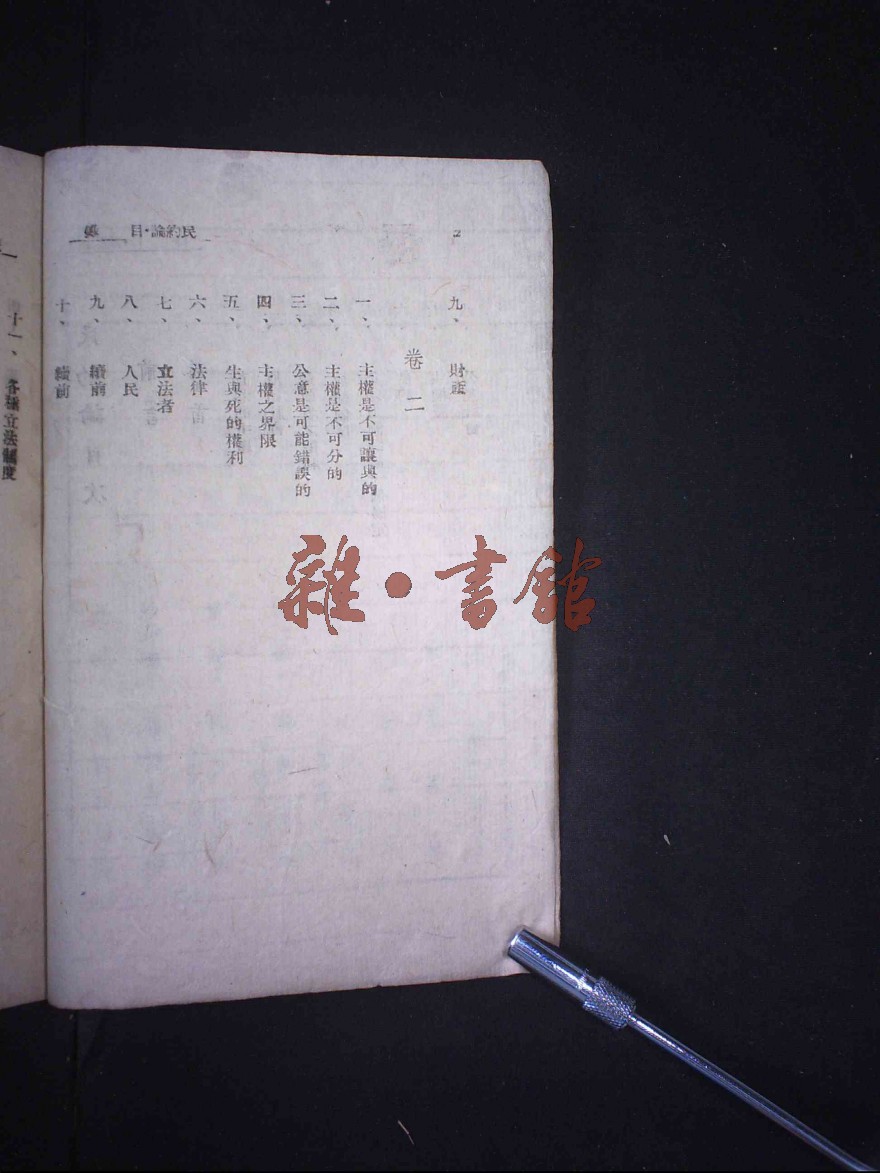 2
民約論·目
九、財產
卷二
一、主權是不可讓與的
二、主權是不可分的
三、公意是可能錯誤的
四、主權之界限
五、生與死的權利
六、法律
七、立法者
八、人民
九、續前
十、續前
十一、各種立法制度
雜·書館